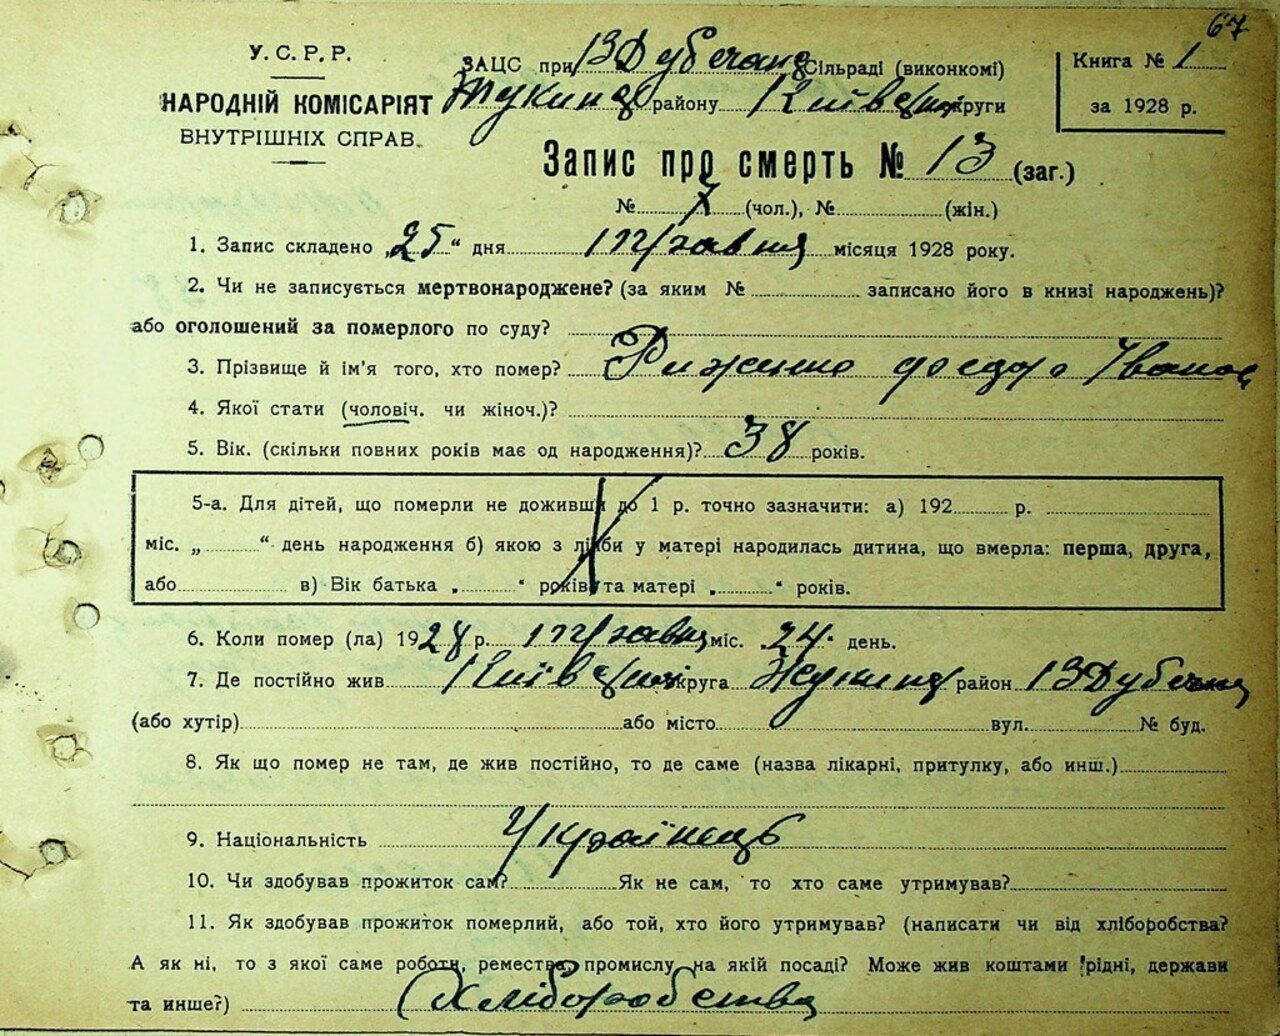 67
У. С. Р. Р.
НАРОДНІЙ КОМІСАРІЯТ
ВНУТРІШНІХ СПРАВ
ЗАЦС при В Дубечанс Сільраді (виконкомі)
Жукинс району Київськ округи
Книга № 1
за 1928 р.
Запис про смерть № 13 (заг.)
№ 7 (чол.), № (жін.)
1. Запис складено „25“ дня Травня місяця 1928 року.
2. Чи не записується мертвонароджене? (за яким № записано його в книзі народжень)?
або оголошений за померлого по суду?
3. Прізвище й ім'я того, хто помер? Федір Іванов
4. Якої стати (чоловіч. чи жіноч.)?
5. Вік. (скільки повних років має од народження)? 38 років.
5-а. Для дітей, що померли не доживши до 1 р. точно зазначити: а) 192 р.
міс. „ “ день народження б) якою з лічби у матері народилась дитина, що вмерла: перша, друга,
або в) Вік батька „ “ років та матері „ “ років.
6. Коли помер (ла) 1928 р. Травня міс. „24“ день.
7. Де постійно жив Київськ округа Жукинс район В Дубечня
(або хутір) або місто вул. № буд.
8. Як що помер не там, де жив постійно, то де саме (назва лікарні, притулку, або инш.)
9. Національність Українець
10. Чи здобував прожиток сам? Як не сам, то хто саме утримував?
11. Як здобував прожиток померлий, або той, хто його утримував? (написати чи від хліборобства?
А як ні, то з якої саме роботи, ремества, промислу, на якій посаді? Може жив коштами рідні, держави
та инше?) Хліборобства